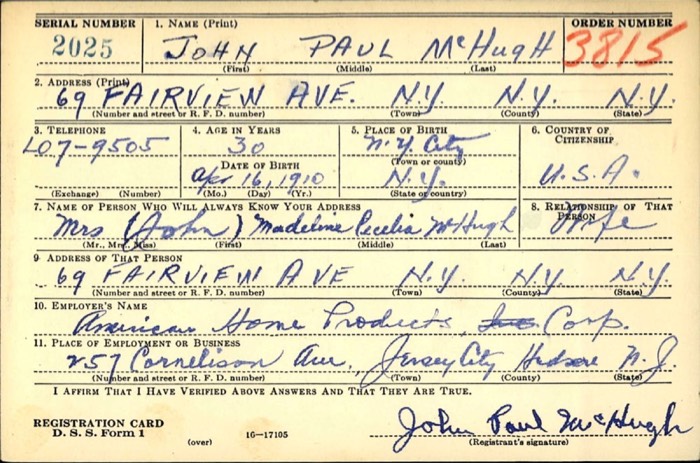 SERIAL NUMBER 1. NAME (Print) ORDER NUMBER
2025 JOHN PAUL McHUGH 3815
(First) (Middle) (Last)
2. ADDRESS (Print)
69 FAIRVIEW AVE. N.Y. N.Y. N.Y.
(Number and street or R. F. D. number) (Town) (County) (State)
3. TELEPHONE 4. AGE IN YEARS 5. PLACE OF BIRTH 6. COUNTRY OF CITIZENSHIP
LO7-9505 30 N.Y. City
DATE OF BIRTH (Town or county)
Apr 16, 1910 N.Y. U.S.A.
(Exchange) (Number) (Mo.) (Day) (Yr.) (State or country)
7. NAME OF PERSON WHO WILL ALWAYS KNOW YOUR ADDRESS 8. RELATIONSHIP OF THAT PERSON
Mrs (John) Madeline Cecelia McHugh Wife
(Mr., Mrs., Miss) (First) (Middle) (Last)
9. ADDRESS OF THAT PERSON
69 FAIRVIEW AVE N.Y. N.Y. N.Y.
(Number and street or R. F. D. number) (Town) (County) (State)
10. EMPLOYER'S NAME
American Home Products, Inc. Corp.
11. PLACE OF EMPLOYMENT OR BUSINESS
257 Cornelison Ave., Jersey City Hudson N.J.
(Number and street or R. F. D. number) (Town) (County) (State)
I AFFIRM THAT I HAVE VERIFIED ABOVE ANSWERS AND THAT THEY ARE TRUE.
REGISTRATION CARD John Paul McHugh
D. S. S. Form 1 (over) 16-17105 (Registrant's signature)